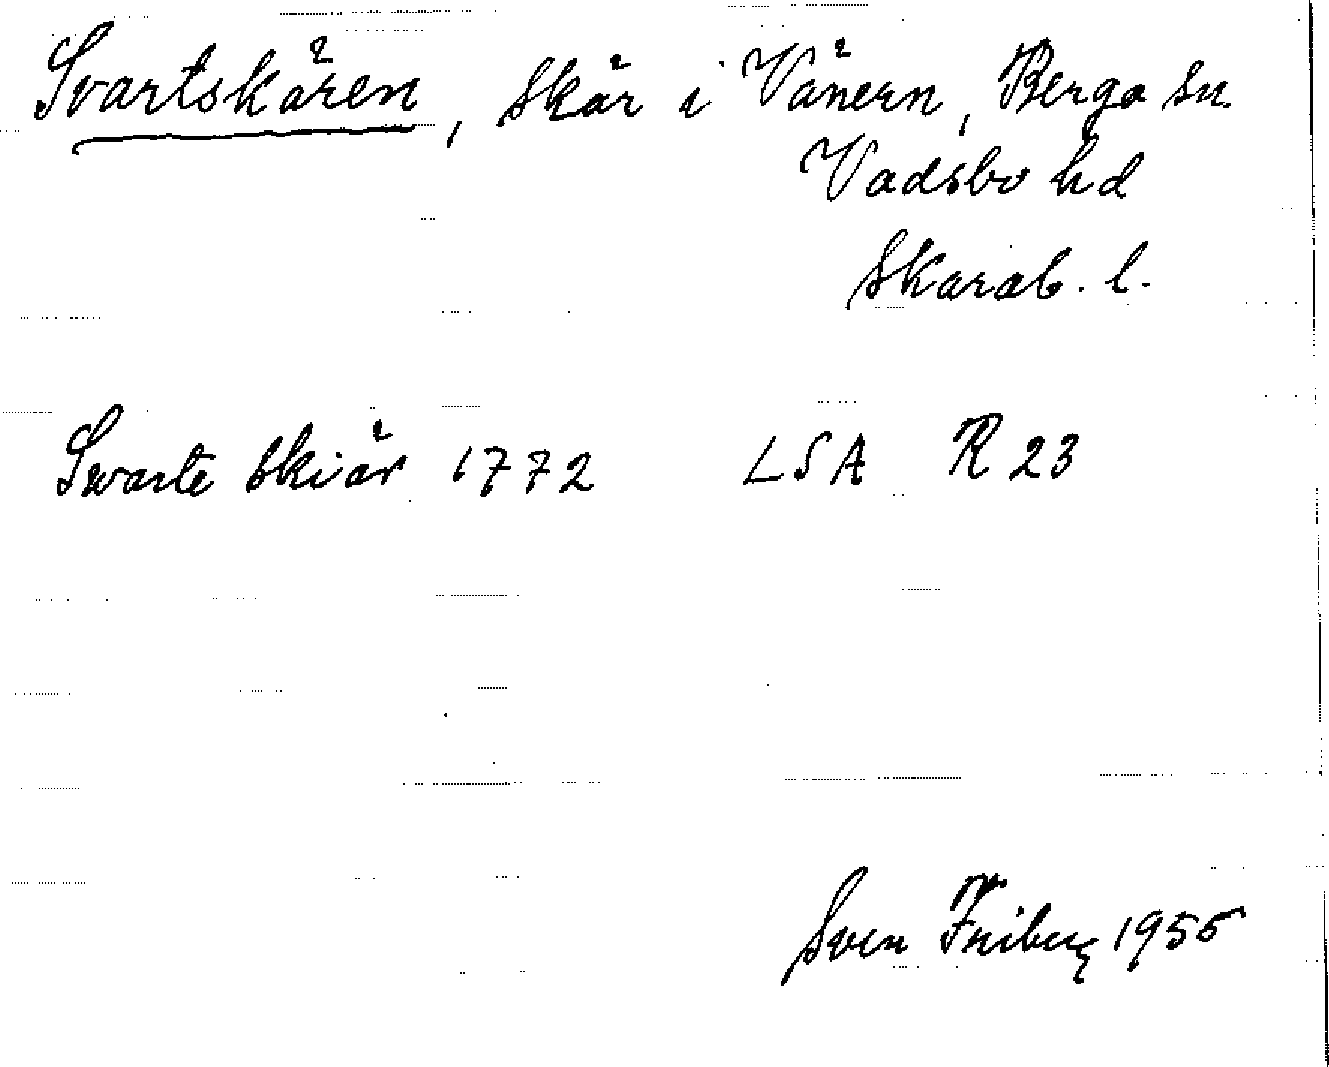 Svartskären, skär i Vänern, Berga sn
Vadsbo hd
Skarab. l.
Swarte skiär 1772 LSA R 23
Sven Friberg 1955